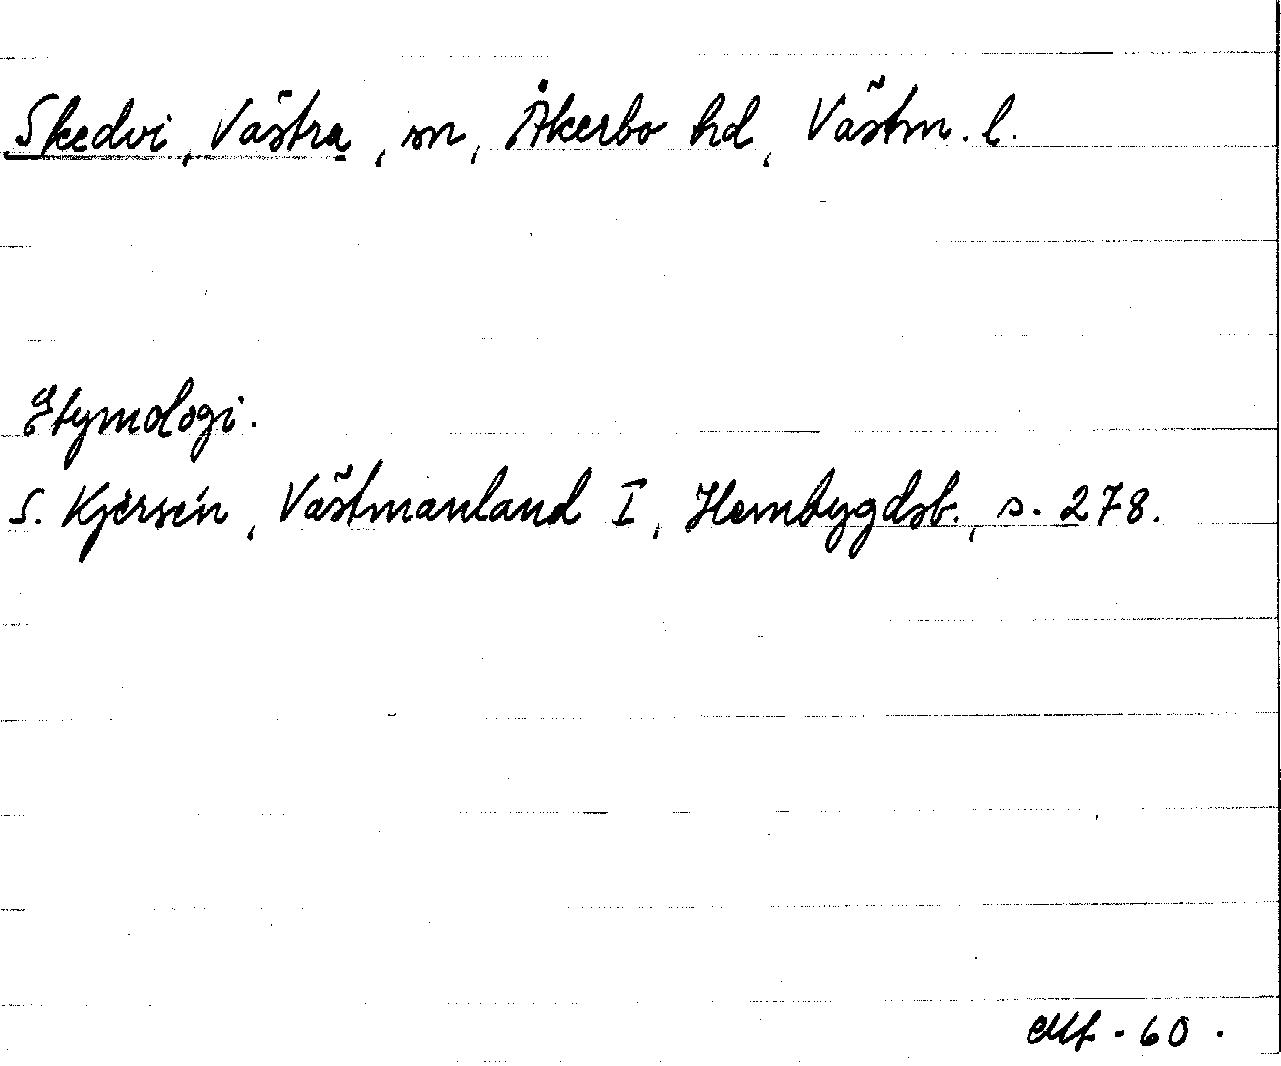 Skedvi, Västra, sn, Åkerbo hd, Västm. l.
Etymologi.
S. Kjersén, Västmanland I, Hembygdsb., s. 278.
60.